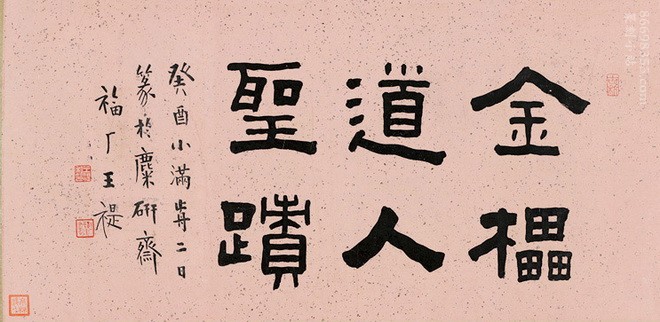 金櫑
道人
聖蹟
癸酉小滿歬二日
篆於麋研齋
福厂王禔